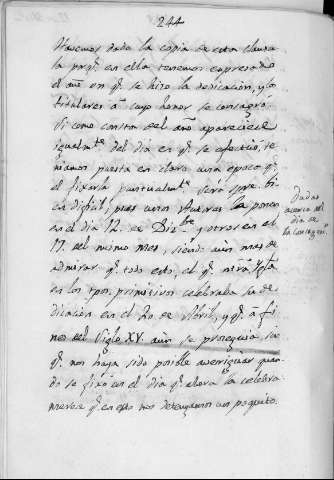 244
Havemos dado la copia de esta clausula
la prq.e en ella tenemos expresado
el año en q.e se hizo la dedicacion, y los
titulares à cuyo honor se consagró.
Si como consta del año apareciese
igualm.te del dia en q.e se efectuó, te
niamos puesta en claro una epoca q.e
el fixarla puntualm.te será spre. bi
en dificil; pues unos Autores la ponen
en el dia 12. de Diz.bre y otros en el
17. del mismo mes, siendo aún mas de
admirar q.e todo esto, el q.e ntra Ygla
en los tpos. primitivos celebraba su de
dicacion en el 20. de Abril, y q.e à fi
nes del Siglo XV. aún se proseguia sin
q.e nos haya sido posible averiguar quan
do se fixó en el dia q.e ahora la celebra
merece q.e en esto nos detengamos un poquito.
Dudas
acerca del
dia de
la Consagon.